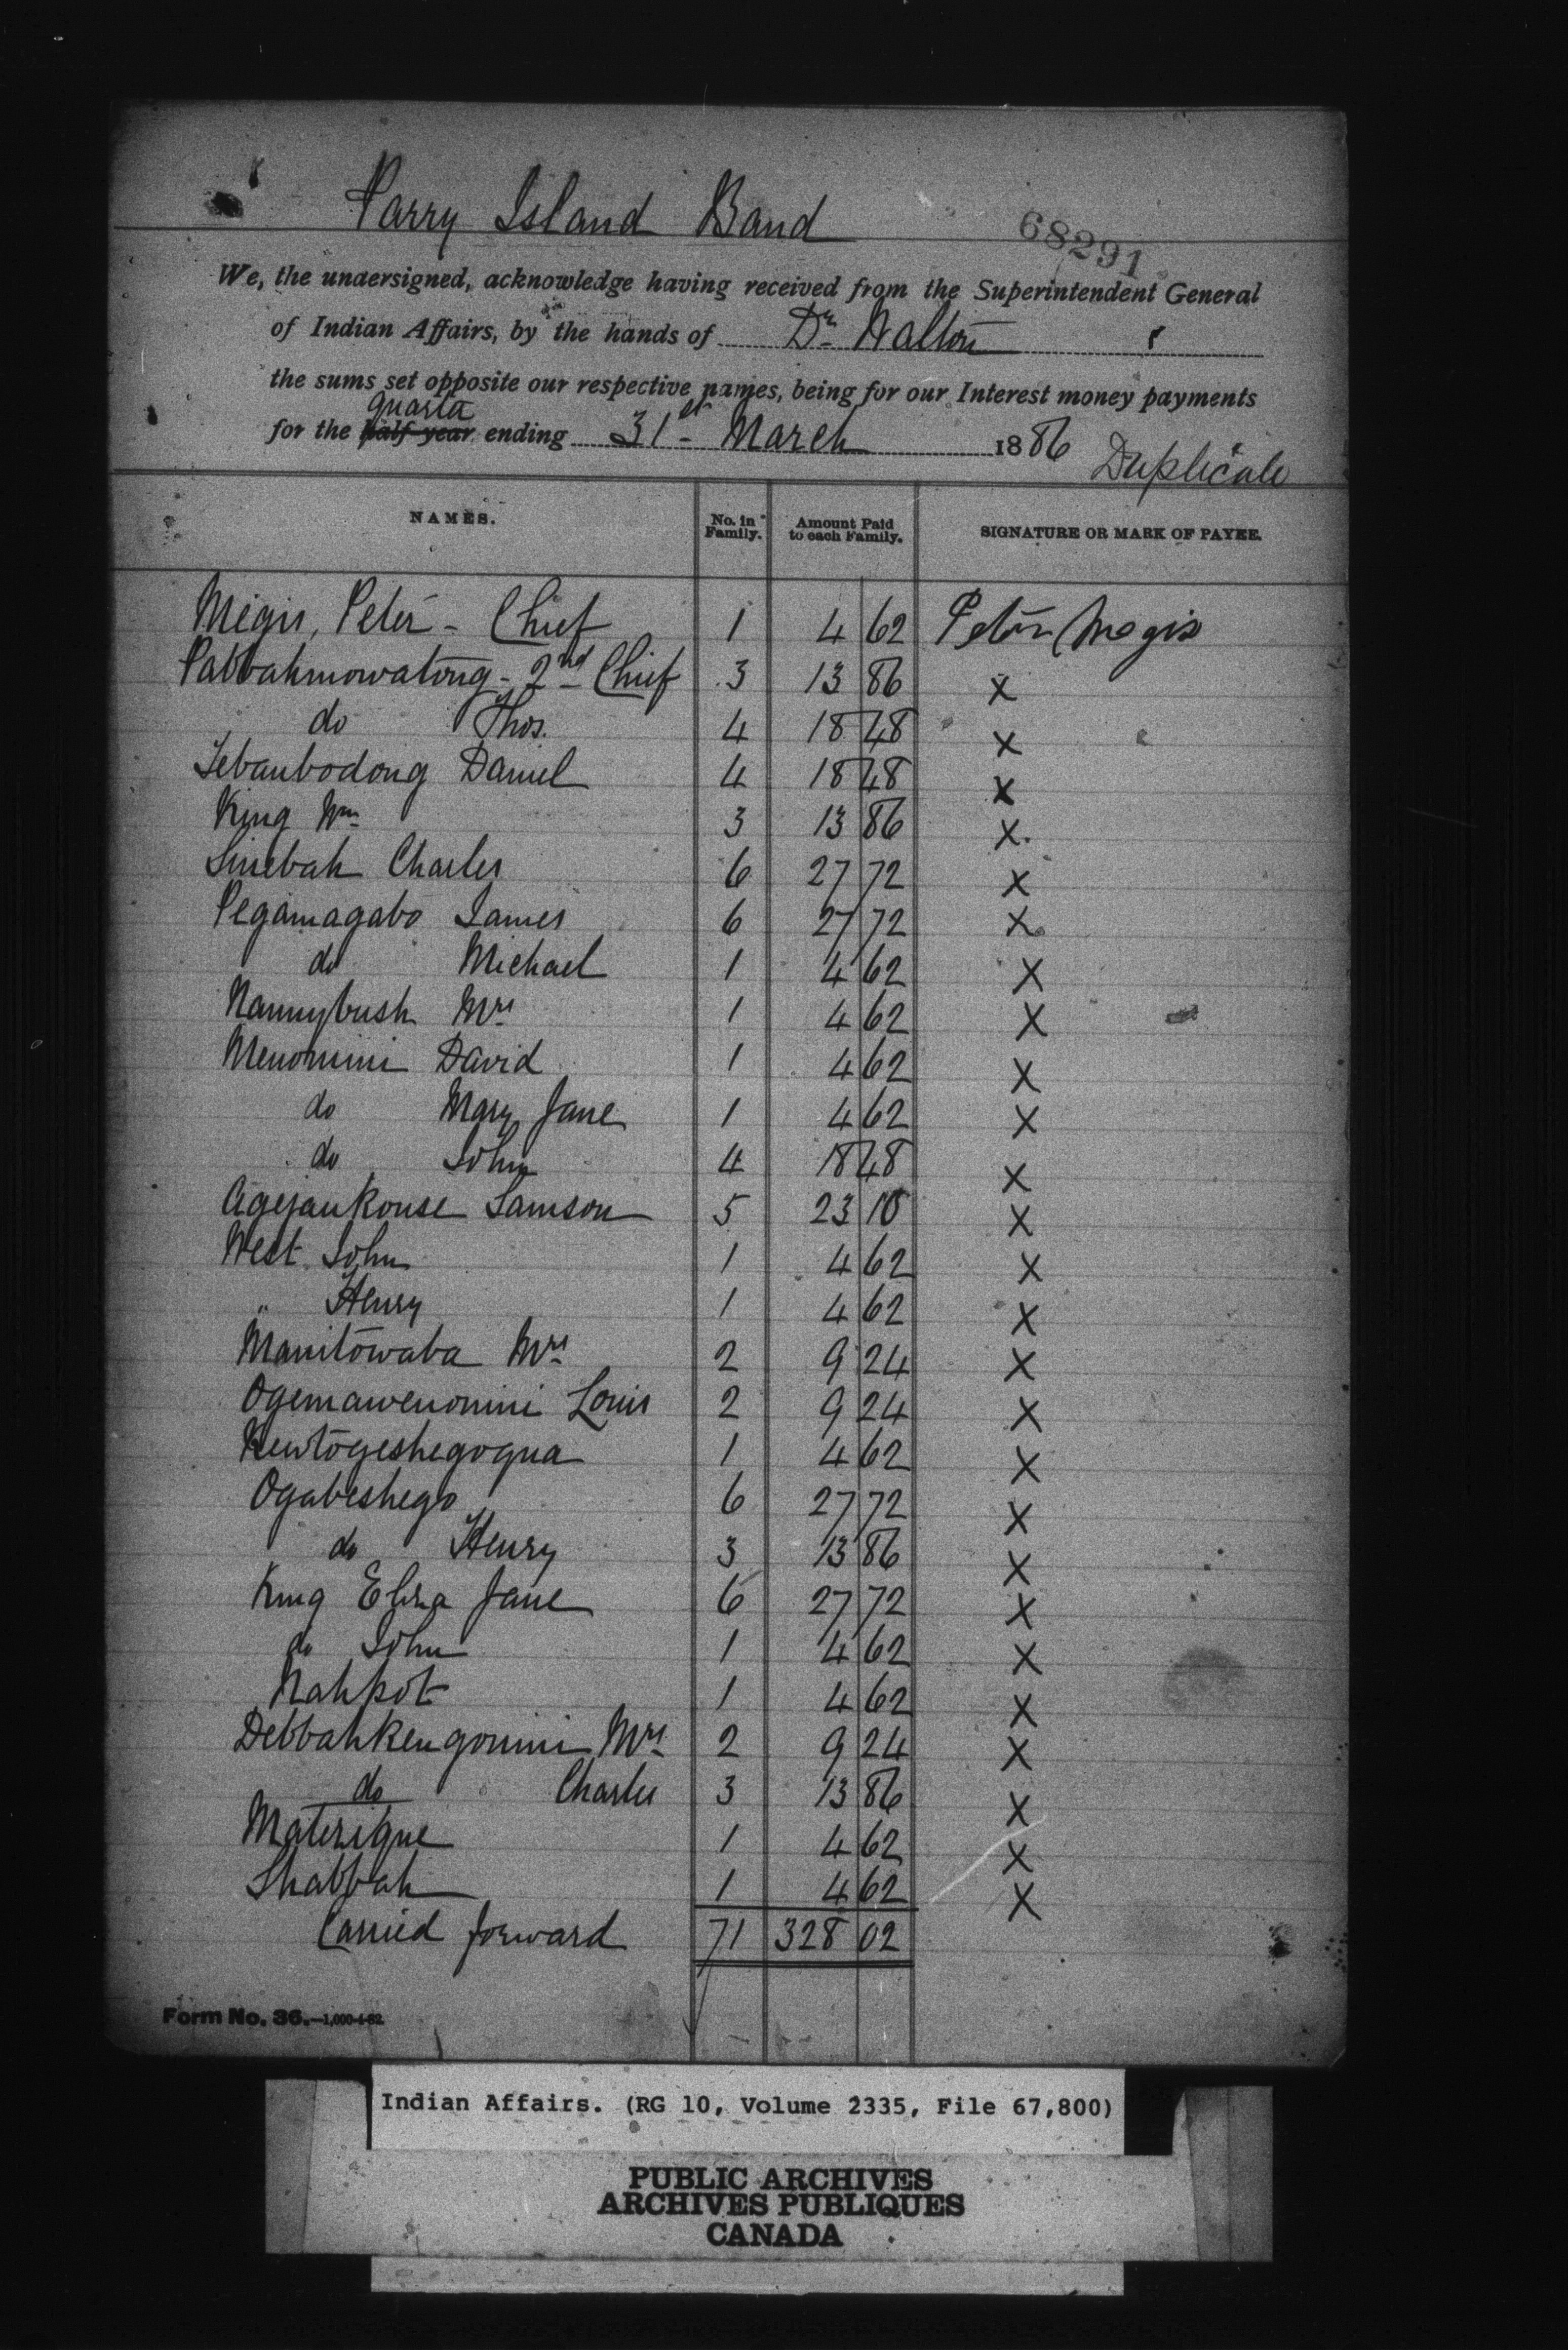 Parry Island Band
68291
We, the undersigned, acknowledge having received from the Superintendent General
of Indian Affairs, by the hands of Dr Walton
the sums set opposite our respective names, being for our Interest money payments
quarter
for the half-year ending 31st March 1886 Duplicate
NAMES. No. in Family. Amount Paid to each Family. SIGNATURE OR MARK OF PAYEE.
Megis, Peter - Chief 1 4 62 Peter Megis
Pabbahmowatong - 2nd Chief 3 13 86 X
do Thos. 4 18 48 X
Tebaubodong Daniel 4 18 48 X
King Wm 3 13 86 X
Sinebah Charles 6 27 72 X
Pegamagabo James 6 27 72 X
do Michael 1 4 62 X
Nannybush Mrs 1 4 62 X
Menomini David 1 4 62 X
do Mary Jane 1 4 62 X
do John 4 18 48 X
Agejaukouse Samson 5 23 10 X
West John 1 4 62 X
" Henry 1 4 62 X
Manitowaba Mrs 2 9 24 X
Ogemawenomini Louis 2 9 24 X
Kewtogeshegoqua 1 4 62 X
Ogabeshego 6 27 72 X
do Henry 3 13 86 X
King Eliza Jane 6 27 72 X
do John 1 4 62 X
Nahpot 1 4 62 X
Debbahkengomini Mrs 2 9 24 X
do Charles 3 13 86 X
Materique 1 4 62 X
Shabbah 1 4 62 X
Carried forward 71 328 02
Form No. 36.—1,000-4-82.
Indian Affairs. (RG 10, Volume 2335, File 67,800)
PUBLIC ARCHIVES
ARCHIVES PUBLIQUES
CANADA